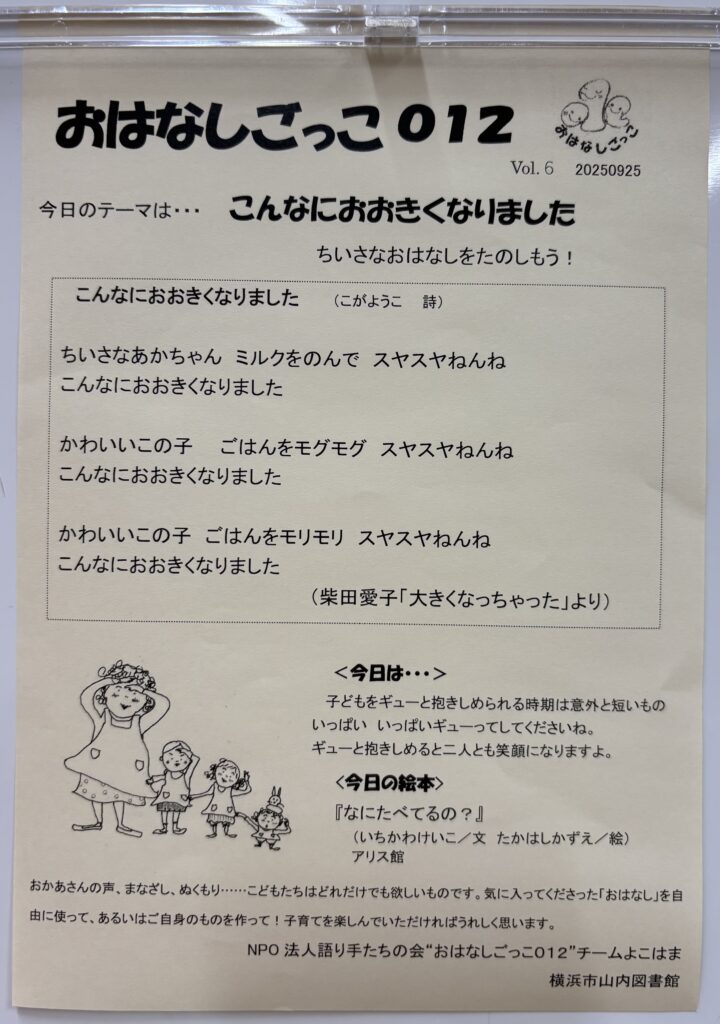 おはなしごっこ012
おはなしごっこ
Vol. 6 20250925
今日のテーマは・・・ こんなにおおきくなりました
ちいさなおはなしをたのしもう！
こんなにおおきくなりました （こがようこ 詩）
ちいさなあかちゃん ミルクをのんで スヤスヤねんね
こんなにおおきくなりました
かわいいこの子 ごはんをモグモグ スヤスヤねんね
こんなにおおきくなりました
かわいいこの子 ごはんをモリモリ スヤスヤねんね
こんなにおおきくなりました
（柴田愛子「大きくなっちゃった」より）
＜今日は・・・＞
子どもをギューと抱きしめられる時期は意外と短いもの
いっぱい いっぱいギューってしてくださいね。
ギューと抱きしめると二人とも笑顔になりますよ。
＜今日の絵本＞
『なにたべてるの？』
（いちかわけいこ／文 たかはしかずえ／絵）
アリス館
おかあさんの声、まなざし、ぬくもり……こどもたちはどれだけでも欲しいものです。気に入ってくださった「おはなし」を自
由に使って、あるいはご自身のものを作って！子育てを楽しんでいただければうれしく思います。
NPO 法人語り手たちの会“おはなしごっこ012”チームよこはま
横浜市山内図書館